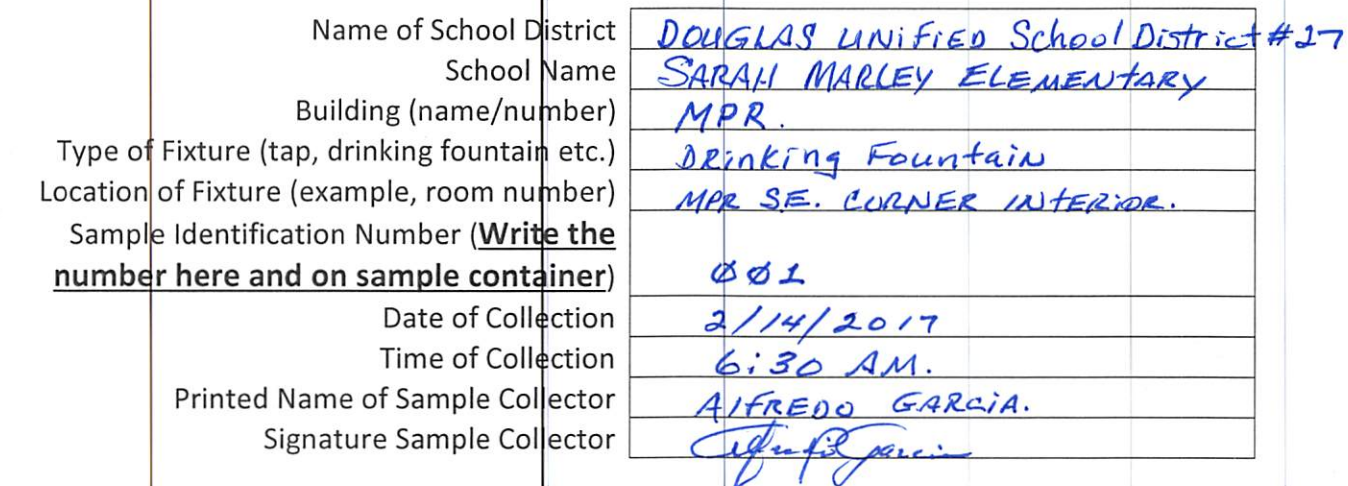 Name of School District DOUGLAS UNiFiED School District #27
School Name SARAH MARLEY ELEMENtARY
Building (name/number) MPR.
Type of Fixture (tap, drinking fountain etc.) DRinKing Fountain
Location of Fixture (example, room number) MPR S.E. CORNER INtERiOR.
Sample Identification Number (Write the
number here and on sample container) 001
Date of Collection 2/14/2017
Time of Collection 6:30 AM.
Printed Name of Sample Collector AlFREDO GARCiA.
Signature Sample Collector